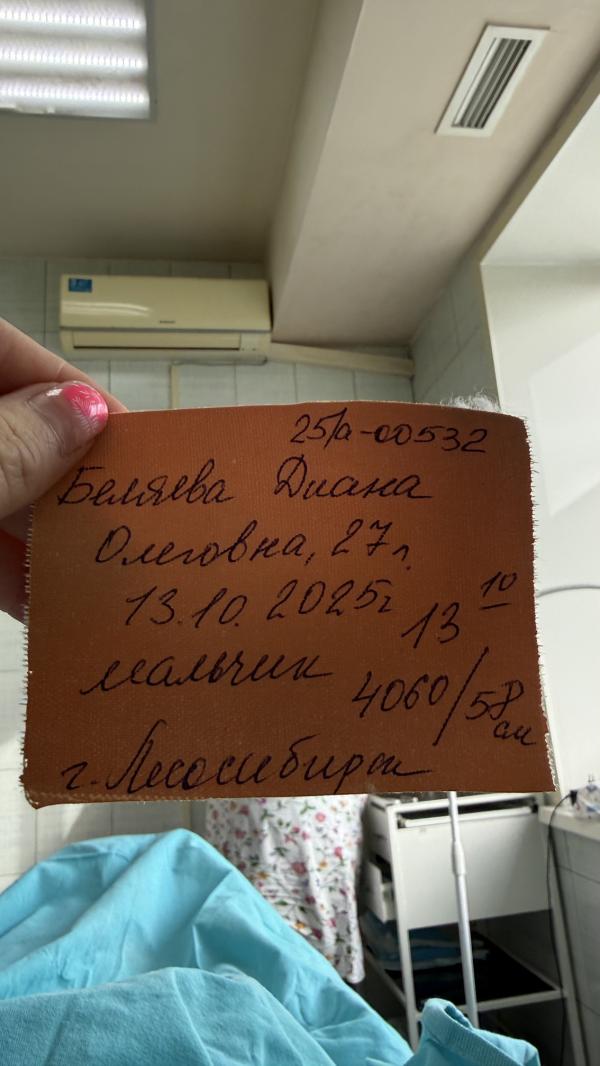 25/а-00532
Беляева Диана
Олеговна, 27л.
13.10.2025г 13 10
мальчик 4060/58 см
г. Лесосибирск